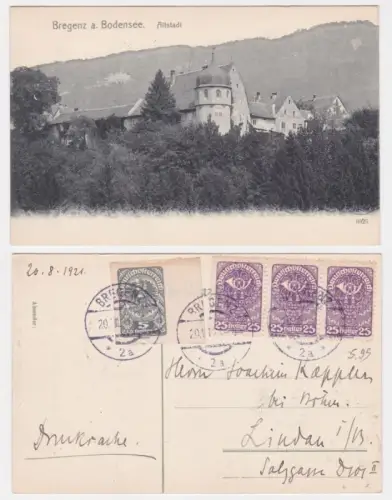 Bregenz a. Bodensee. Altstadt
20.8.1921.
Absender:
BREGENZ
20.
2a
5
BREGENZ
20.
2a
25 Heller 25
25 Heller 25
25 Heller 25
2a
5.95
Herrn Joachim Kappler
bei Böhm.
Lindau i/B.
Drucksache.
Salzgasse